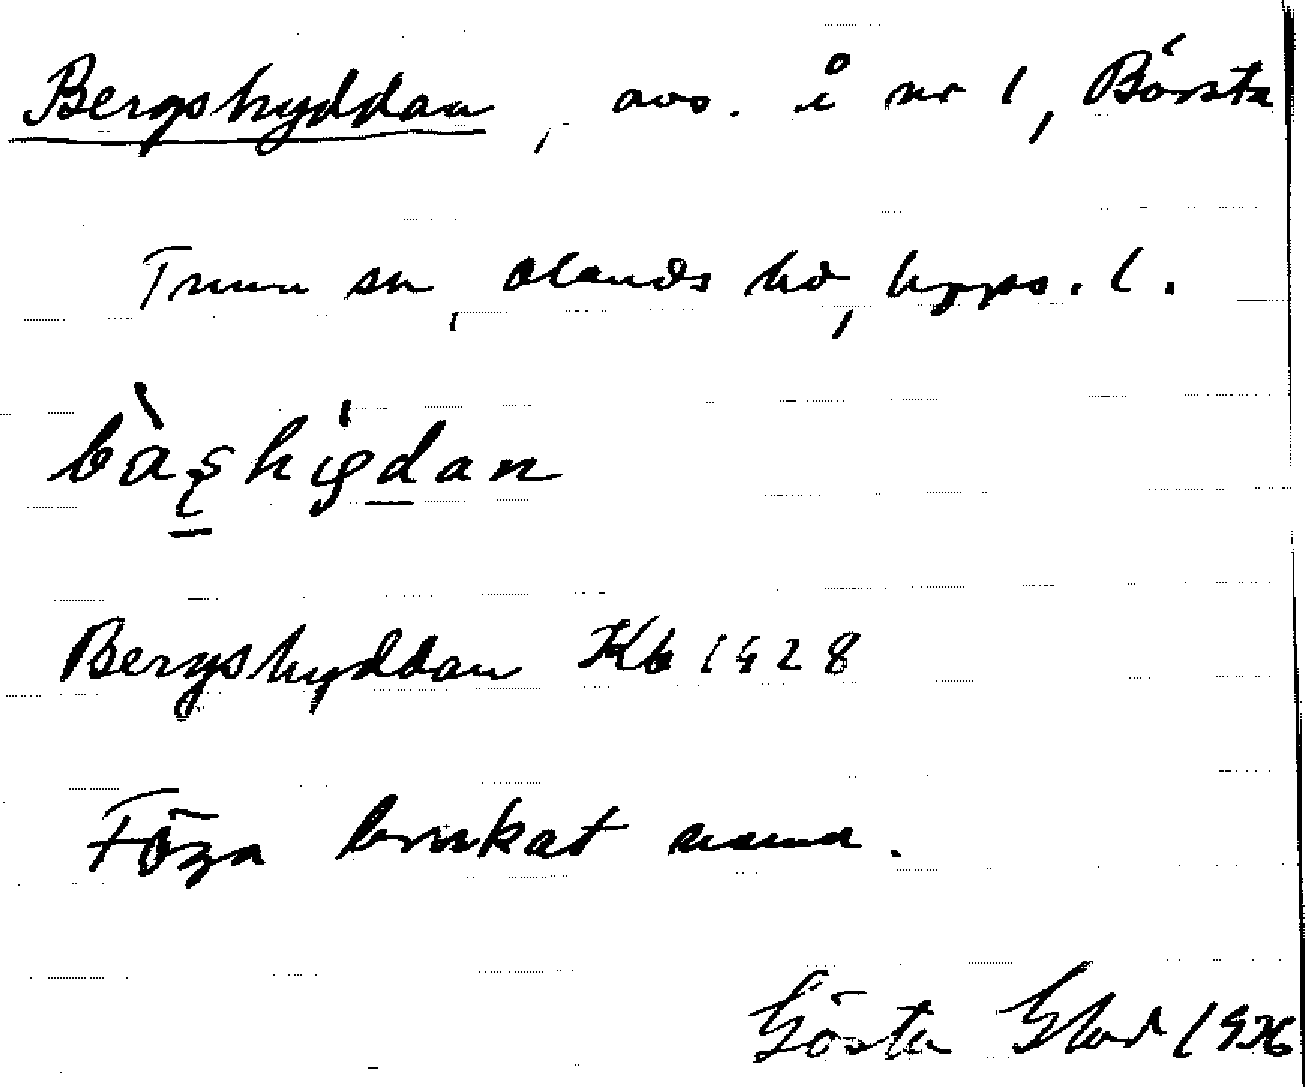 Bergshyddan, avs. å nr 1, Börsta
Tuna sn, Olands hd, Upps. l.
bàʂhìgdan
Bergshyddan Kb 1928
Föga brukat namn.
Gösta Glad 1936